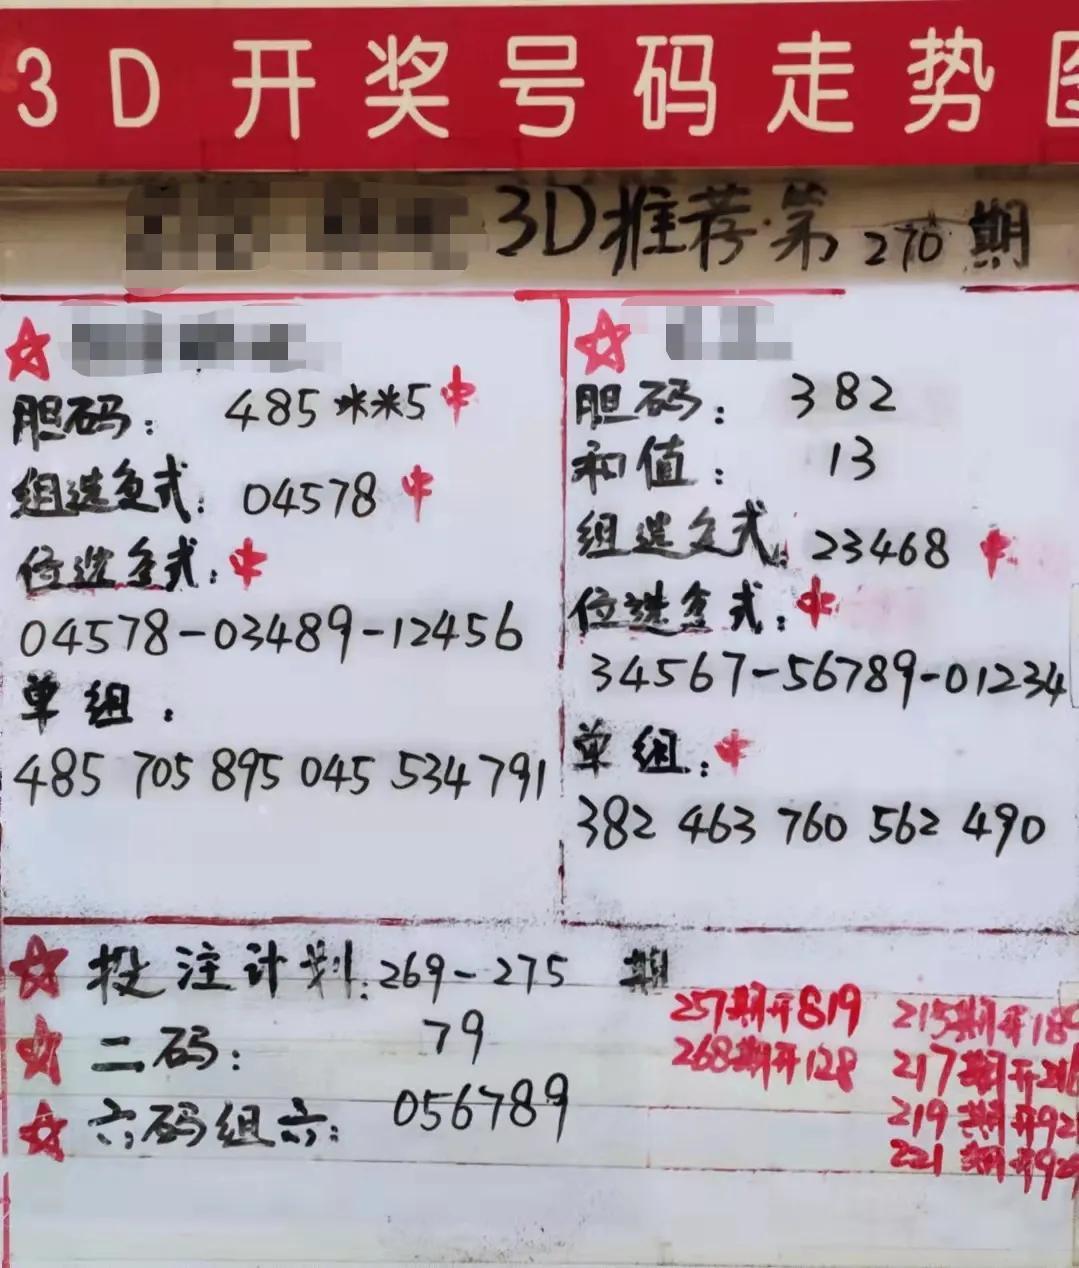 3D开奖号码走势
3D推荐.第270期
胆码： 485**5 中
组选复式： 04578 中
位选复式： 中
04578-03489-12456
单组：
485 705 895 045 534 791
胆码： 382
和值： 13
组选复式： 23468 中
位选复式： 中
34567-56789-01234
单组： 中
382 463 760 562 490
投注计划：269-275 期
二码： 79
六码组六： 056789
257期开819
268期开128
215期开18
217期开21
219期开92
221期开92